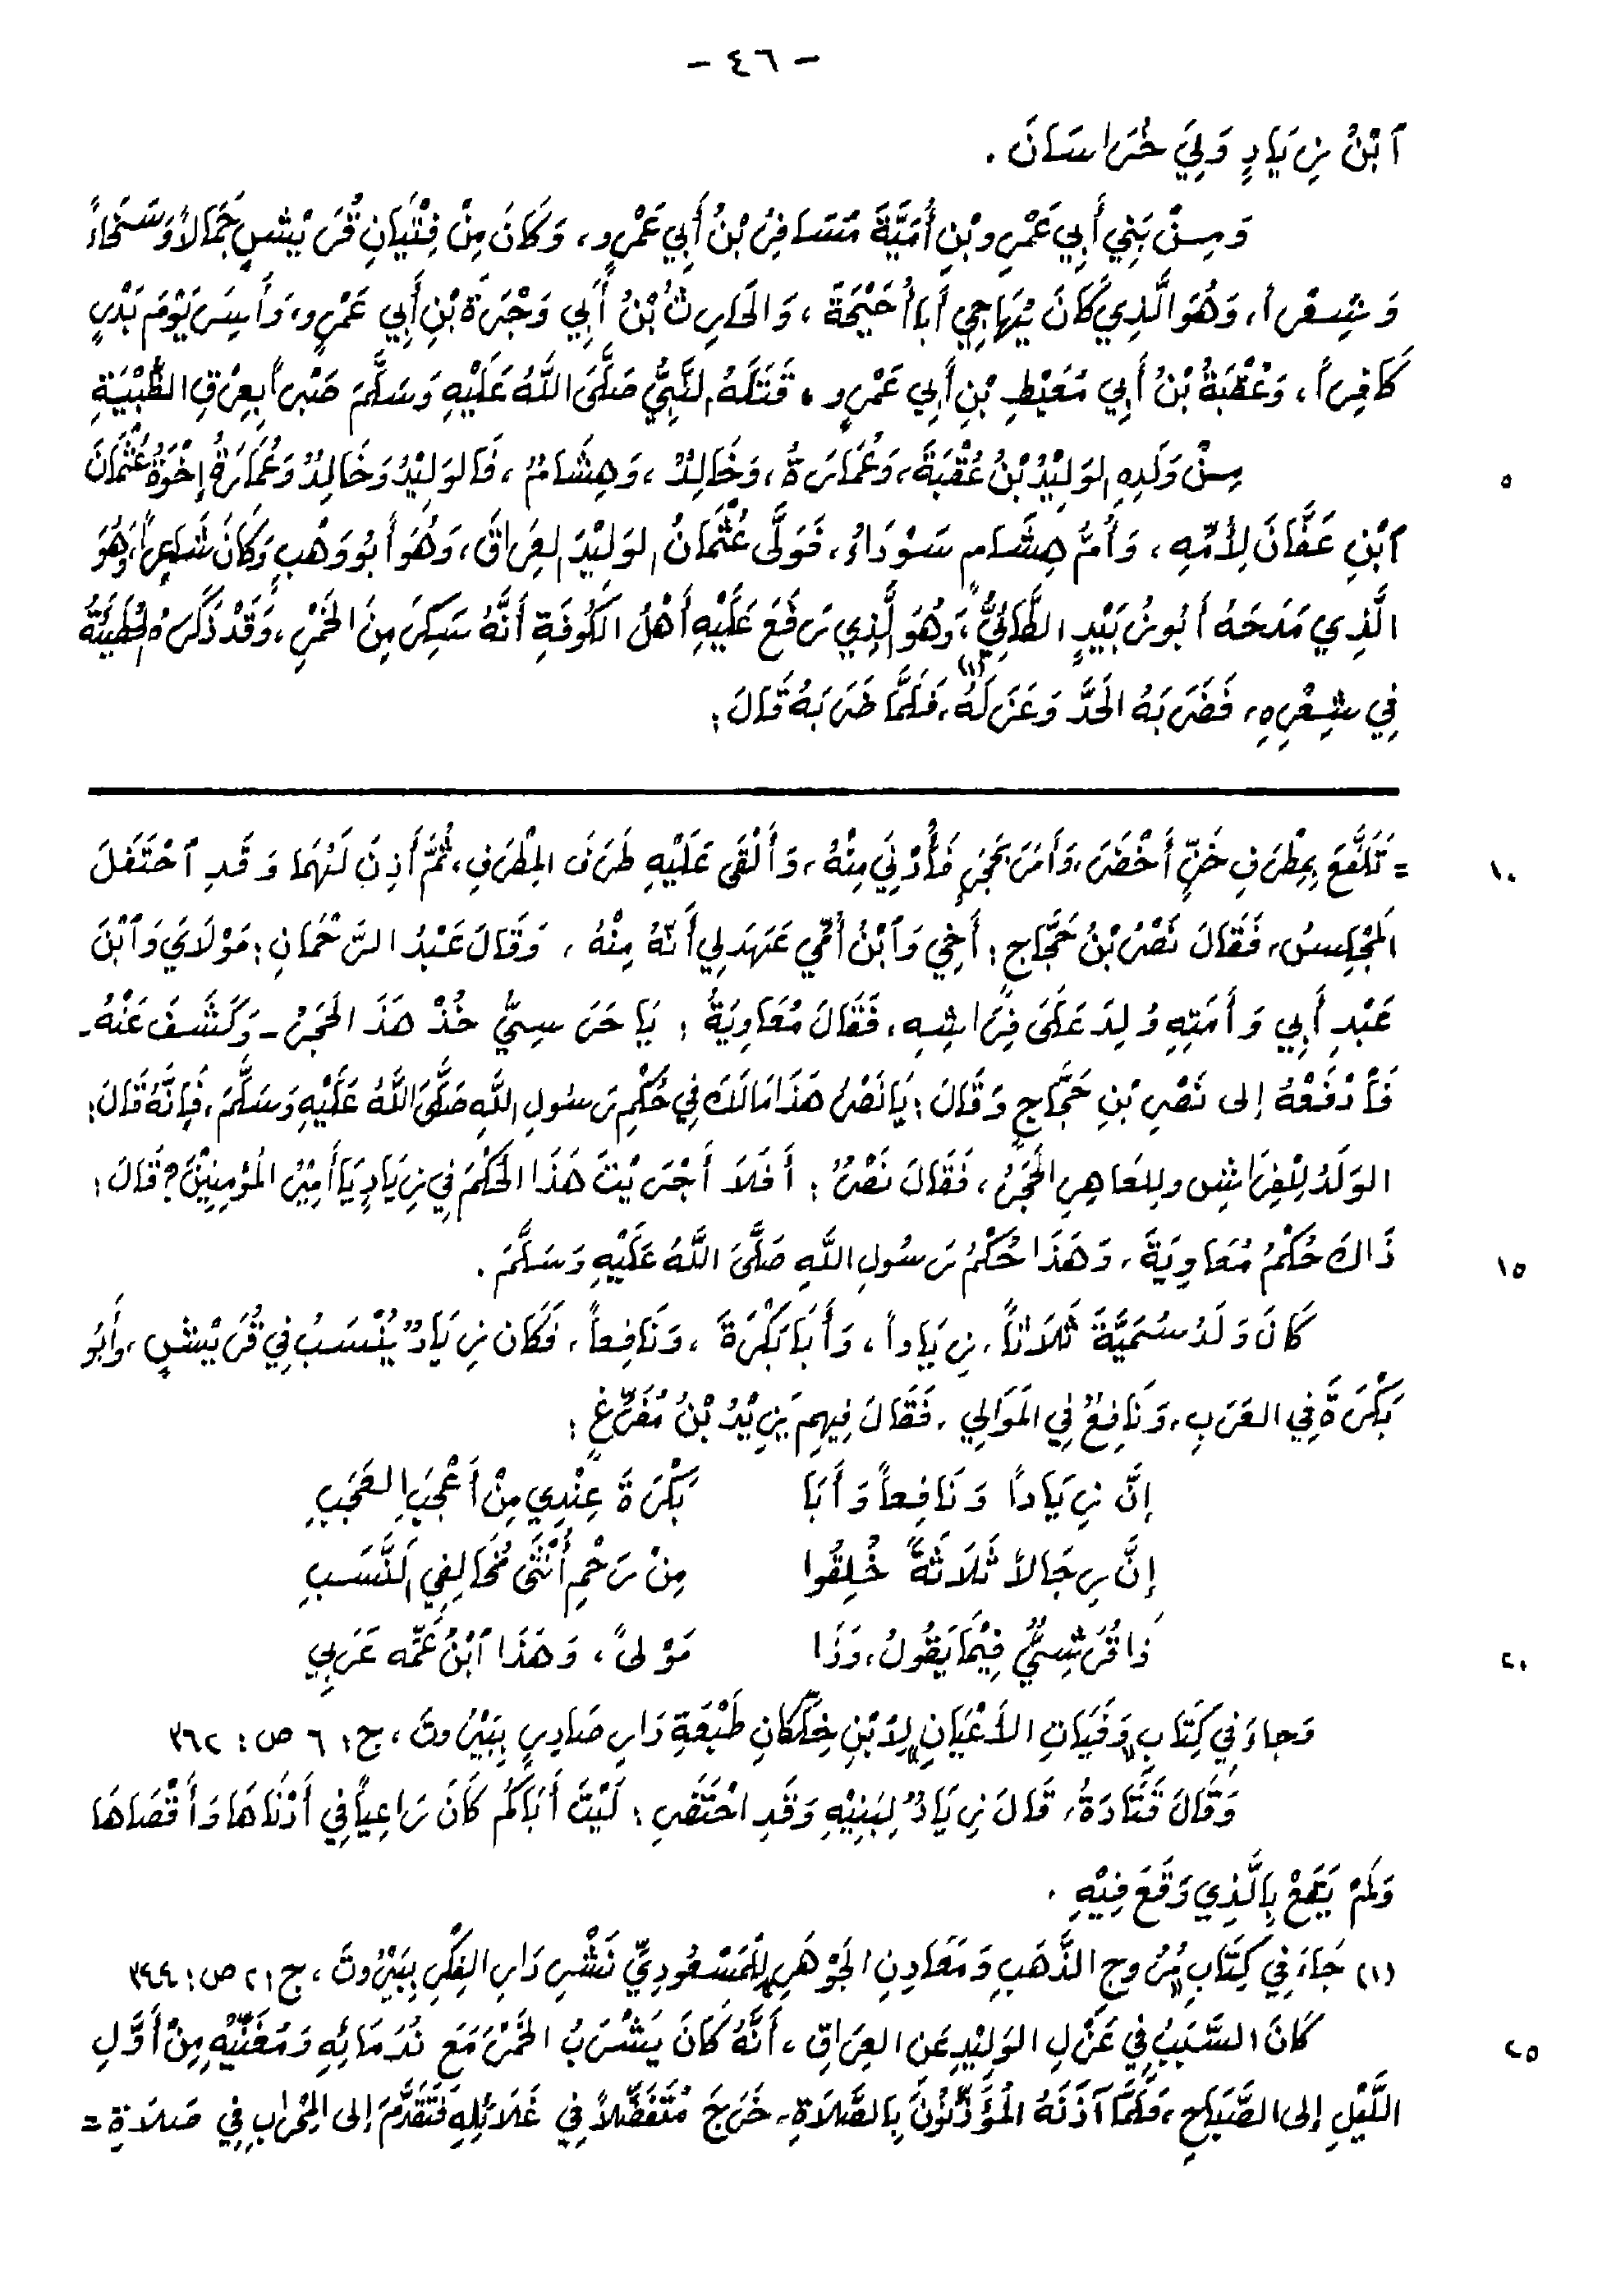 - ٤٦ -
ٱبْنُ زِيَادٍ وَلِيَ خُرَاسَانَ .
وَمِنْ بَنِي أَبِي عَمْرِو بْنِ أُمَيَّةَ مُسَافِرُ بْنُ أَبِي عَمْرٍو، وَكَانَ مِنْ فِتْيَانِ قُرَيْشٍ جَمَالاً وَسَخَاءً
وَشِعْراً، وَهُوَ الَّذِي كَانَ يُهَاجِي أَبَا أُحَيْحَةَ ، وَالحَارِثُ بْنُ أَبِي وَجْرَةَ بْنِ أَبِي عَمْرٍو، وَأُسِرَ يَوْمَ بَدْرٍ
كَافِراً ، وَعُقْبَةُ بْنُ أَبِي مُعَيْطِ بْنِ أَبِي عَمْرٍو ، قَتَلَهُ النَّبِيُّ صَلَّى اللَّهُ عَلَيْهِ وَسَلَّمَ صَبْراً بِعِرْقِ الظُّبْيَةِ
٥ مِنْ وَلَدِهِ الوَلِيْدُ بْنُ عُقْبَةَ، وَعُمَارَةُ، وَخَالِدٌ ، وَهِشَامٌ ، فَالوَلِيْدُ وَخَالِدٌ وَعُمَارَةُ إِخْوَةُ عُثْمَانَ
ٱبْنِ عَفَّانَ لِأُمِّهِ ، وَأُمُّ هِشَامٍ سَوْدَاءُ ، فَوَلَّى عُثْمَانُ الوَلِيْدَ العِرَاقَ ، وَهُوَ أَبُو وَهْبٍ وَكَانَ شَاعِراً، وَهُوَ
الَّذِي مَدَحَهُ أَبُو زُبَيْدٍ الطَّائِيُّ ، وَهُوَ الَّذِي رَفَعَ عَلَيْهِ أَهْلُ الكُوفَةِ أَنَّهُ سَكِرَ مِنَ الخَمْرِ ، وَقَدْ ذَكَرَهُ الحُطَيْئَةُ
فِي شِعْرِهِ، فَضَرَبَهُ الحَدَّ وَعَزَلَهُ (١)، فَلَمَّا ضَرَبَهُ قَالَ :
١٠ = تَلَفَّعَ بِمِطْرَفِ خَزٍّ أَخْضَرَ، وَأَمَرَ بِحَجَرٍ فَأُدْنِيَ مِنْهُ ، وَأَلْقَى عَلَيْهِ طَرَفَ المِطْرَفِ ، ثُمَّ أَذِنَ لَهُمَا وَقَدِ ٱحْتَفَلَ
المَجْلِسُ، فَقَالَ نَصْرُ بْنُ حَجَّاجٍ : أَخِي وَٱبْنُ أُمِّي عَهِدَ لِي أَنَّهُ مِنْهُ ، وَقَالَ عَبْدُ الرَّحْمَانِ : مَوْلَايَ وَٱبْنُ
عَبْدِ أَبِي وَأَمَتِهِ وُلِدَ عَلَى فِرَاشِهِ ، فَقَالَ مُعَاوِيَةُ : يَا حَرَسِيُّ خُذْ هَذَا الحَجَرَ - وَكَشَفَ عَنْهُ -
فَٱدْفَعْهُ إِلى نَصْرِ بْنِ حَجَّاجٍ وَقَالَ : يَا نَصْرُ هَذَا مَالَكَ فِي حُكْمِ رَسُولِ اللَّهِ صَلَّى اللَّهُ عَلَيْهِ وَسَلَّمَ ، فَإِنَّهُ قَالَ :
الوَلَدُ لِلْفِرَاشِ وَلِلعَاهِرِ الحَجَرُ ، فَقَالَ نَصْرٌ : أَفَلاَ أَجْرَيْتَ هَذَا الحُكْمَ فِي زِيَادٍ يَا أَمِيْرَ المُؤْمِنِيْنَ ؟ قَالَ :
١٥ ذَاكَ حُكْمُ مُعَاوِيَةَ ، وَهَذَا حُكْمُ رَسُولِ اللَّهِ صَلَّى اللَّهُ عَلَيْهِ وَسَلَّمَ .
كَانَ وَلَدُ سُمَيَّةَ ثَلاَثاً ، زِيَاداً ، وَأَبَا بَكْرَةَ ، وَنَافِعاً ، فَكَان زِيَادٌ يُنْسَبُ فِي قُرَيْشٍ ، وَأَبُو
بَكْرَةَ فِي العَرَبِ، وَنَافِعٌ فِي المَوَالِي ، فَقَالَ فِيهِم يَزِيْدُ بْنُ مُفَرِّغٍ :
إِنَّ زِيَاداً وَنَافِعاً وَأَبَا بَكْرَةَ عِنْدِي مِنْ أَعْجَبِ العَجَبِ
إِنَّ رِجَالاً ثَلاَثَةً خُلِقُوا مِنْ رَحْمِ أُنْثَى مُخَالِفِي النَّسَبِ
٢٠ ذَا قُرَشِيٌّ فِيْمَا يَقُولُ، وَذَا مَوْلىً ، وَهَذَا ٱبْنُ عَمِّهِ عَرَبِي
وَجاءَ فِي كِتَابِ "وَفَيَاتِ الأَعْيَانِ" لِابْنِ خِلِّكَانِ طَبْعَةِ دَارِ صَادِرِ بِبَيْرُوتَ ، ج : ٦ ص : ٣٦٢
وَقَالَ قَتَادَةُ، قَالَ زِيَادٌ لِبَنِيْهِ وَقَدِ احْتُضِرَ : لَيْتَ أَبَاكُمْ كَانَ رَاعِياً فِي أَدْنَاهَا وَأَقْصَاهَا
وَلَمْ يَقَعْ بِالَّذِي وَقَعَ فِيْهِ .
(١) جَاءَ فِي كِتَابِ "مُرُوجِ الذَّهَبِ وَمَعَادِنِ الجَوْهَرِ" لِلْمَسْعُودِيِّ نَشْرِ دَارِ الفِكْرِ بِبَيْرُوتَ ، ج : ٢ ص : ٣٤٤
٢٥ كَانَ السَّبَبُ فِي عَزْلِ الوَلِيْدِ عَنِ العِرَاقِ ، أَنَّهُ كَانَ يَشْرَبُ الخَمْرَ مَعَ نُدَمَائِهِ وَمُغَنِّيْهِ مِنْ أَوَّلِ
اللَّيْلِ إِلى الصَّبَاحِ ، فَلَمَّا آذَنَهُ المُؤَذِّنُوْنَ بِالصَّلاَةِ ، خَرَجَ مُتَفَضِّلاً فِي غَلاَئِلِهِ فَتَقَدَّمَ إِلى المِحْرَابِ فِي صَلاَةِ =